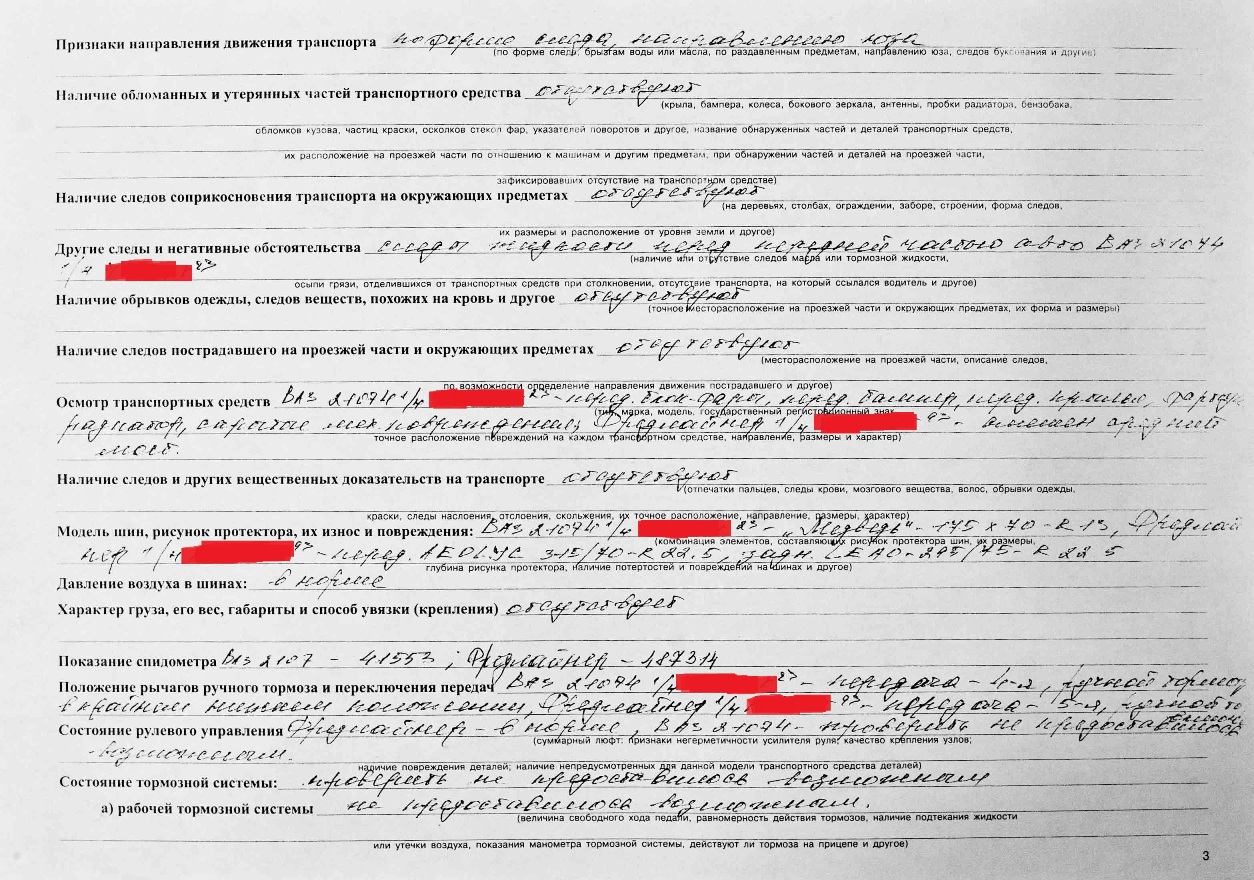 Признаки направления движения транспорта по форме следа, направлению юза
(по форме следа, брызгам воды или масла, по раздавленным предметам, направлению юза, следов буксования и другие)
Наличие обломанных и утерянных частей транспортного средства отсутствуют
(крыла, бампера, колеса, бокового зеркала, антенны, пробки радиатора, бензобака,
обломков кузова, частиц краски, осколков стекол фар, указателей поворотов и другое, название обнаруженных частей и деталей транспортных средств,
их расположение на проезжей части по отношению к машинам и другим предметам, при обнаружении частей и деталей на проезжей части,
зафиксировавших отсутствие на транспортном средстве)
Наличие следов соприкосновения транспорта на окружающих предметах отсутствуют
(на деревьях, столбах, ограждении, заборе, строении, форма следов,
их размеры и расположение от уровня земли и другое)
Другие следы и негативные обстоятельства следы жидкости перед передней частью авто ВАЗ 21074
(наличие или отсутствие следов масла или тормозной жидкости,
г/н 23
осыпи грязи, отделившихся от транспортных средств при столкновении, отсутствие транспорта, на который ссылался водитель и другое)
Наличие обрывков одежды, следов веществ, похожих на кровь и другое отсутствуют
(точное месторасположение на проезжей части и окружающих предметах, их форма и размеры)
Наличие следов пострадавшего на проезжей части и окружающих предметах отсутствуют
(месторасположение на проезжей части, описание следов,
по возможности определение направления движения пострадавшего и другое)
Осмотр транспортных средств ВАЗ 21074 г/н 23 - перед. блок-фары, перед. бампер, перед. крылья,
(тип, марка, модель, государственный регистрационный знак,
радиатор, скрытые мех. повреждения; Фредлайнер г/н 93 -
точное расположение повреждений на каждом транспортном средстве, направление, размеры и характер)
мост.
Наличие следов и других вещественных доказательств на транспорте отсутствуют
(отпечатки пальцев, следы крови, мозгового вещества, волос, обрывки одежды,
краски, следы наслоения, отслоения, скольжения, их точное расположение, направление, размеры, характер)
Модель шин, рисунок протектора, их износ и повреждения: ВАЗ 21074 г/н 23 - „Медведь" - 175 х 70 - R 13, Фредлай
(комбинация элементов, составляющих рисунок протектора шин, их размеры,
нер г/н 93 - перед. AEOLUS 315/70-R 22.5, задн. LEAO - 295/75 - R 22 5
глубина рисунка протектора, наличие потертостей и повреждений на шинах и другое)
Давление воздуха в шинах: в норме
Характер груза, его вес, габариты и способ увязки (крепления) отсутствует
Показание спидометра ВАЗ 2107 - 41553 ; Фредлайнер - 487314
Положение рычагов ручного тормоза и переключения передач ВАЗ 21074 г/н 23 - передача - 4-я, ручной тормоз
в крайнем нижнем положении, Фредлайнер г/н 93 - передача - 5-я, ручной то
Состояние рулевого управления Фредлайнер - в норме, ВАЗ 21074 - проверить не предоставилось
(суммарный люфт: признаки негерметичности усилителя руля; качество крепления узлов;
возможным.
наличие повреждения деталей; наличие непредусмотренных для данной модели транспортного средства деталей)
Состояние тормозной системы: проверить не предоставилось возможным
а) рабочей тормозной системы не предоставилось возможным.
(величина свободного хода педали, равномерность действия тормозов, наличие подтекания жидкости
или утечки воздуха, показания манометра тормозной системы, действуют ли тормоза на прицепе и другое)
3